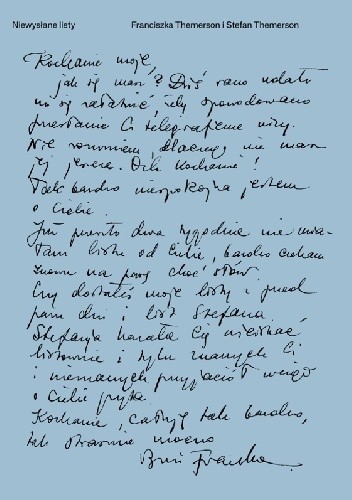 Niewysłane listy
Franciszka Themerson i Stefan Themerson
Kochanie moje,
jak się masz? Dziś rano udało
mi się załatwić, żeby spowodowano
przesłanie Ci telegraficzne wizy.
Nie rozumiem, dlaczego nie masz
jej jeszcze. Och kochanie!
Tak bardzo niespokojna jestem
o Ciebie.
Już przeszło dwa tygodnie nie mia-
łam listu od Ciebie, bardzo czekam
znowu na parę choć słów.
Czy dostałeś moje listy i przed
paru dni i list Stefana
Stefania kazała Cię uściskać
listownie i tylu znanych Ci
i nieznanych przyjaciół wciąż
o Ciebie pyta.
Kochanie, całuję tak bardzo,
tak strasznie mocno
Franka